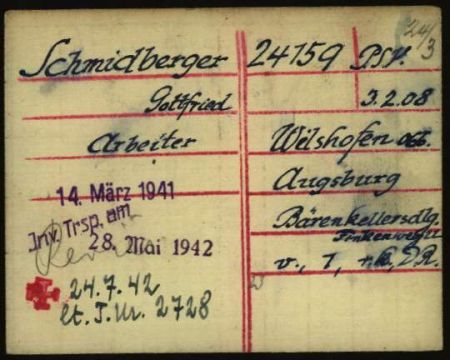 24/3
Schmidberger
Gottfried
Arbeiter
14. März 1941
Inv. Trsp. am
28. Mai 1942
24.7.42
lt. T. Nr. 2728
24159 PSV.
3.2.08
Wilshofen
Augsburg
Bärenkellersdlg.
v., 1, r.k., D.R.